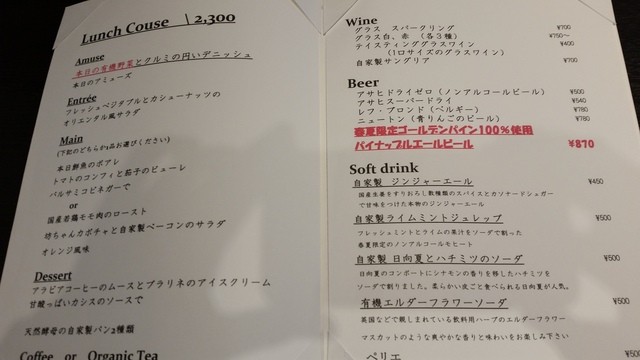 Lunch Couse \ 2,300
Amuse
本日の有機野菜とクルミの円いデニッシュ
本日のアミューズ
Entrée
フレッシュベジタブルとカシューナッツの
オリエンタル風サラダ
Main
(下記のどちらか1品お選びください)
本日鮮魚のポアレ
トマトのコンフィと茄子のピューレ
バルサミコビネガーで
or
国産若鶏モモ肉のロースト
坊ちゃんカボチャと自家製ベーコンのサラダ
オレンジ風味
Dessert
アラビアコーヒーのムースとプラリネのアイスクリーム
甘酸っぱいカシスのソースで
天然酵母の自家製パン2種類
Coffee or Organic Tea
Wine
グラス スパークリング ¥700
グラス白、赤 (各3種) ¥750〜
テイスティンググラスワイン ¥400
(1口サイズのグラスワイン)
自家製サングリア ¥700
Beer
アサヒドライゼロ(ノンアルコールビール) ¥500
アサヒスーパードライ ¥540
レフ・ブロンド(ベルギー) ¥780
ニュートン(青りんごのビール) ¥780
春夏限定ゴールデンパイン100%使用
パイナップルエールビール ¥870
Soft drink
自家製 ジンジャーエール ¥450
国産生姜をすりおろし数種類のスパイスとカソナードシュガー
で甘味をつけた本物のジンジャーエール
自家製ライムミントジュレップ ¥500
フレッシュミントとライムの果汁をソーダで割った
春夏限定のノンアルコールモヒート
自家製 日向夏とハチミツのソーダ ¥500
日向夏のコンポートにシナモンの香りを移したハチミツを
ソーダで割りました。柔らかい皮ごと食べられる日向夏が人気。
有機エルダーフラワーソーダ ¥500
英国などで親しまれている飲料用ハーブのエルダーフラワー
マスカットのような爽やかな香りと味わいをお楽しみ下さい
ペリエ ¥500